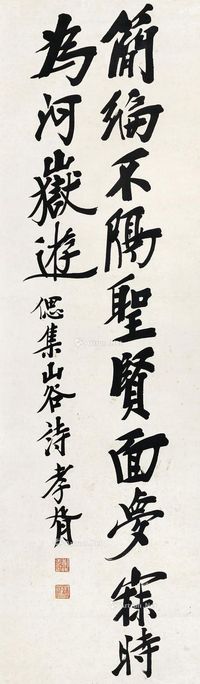 簡編不隔聖賢面夢寐時
為河嶽遊 偲集山谷詩 孝胥